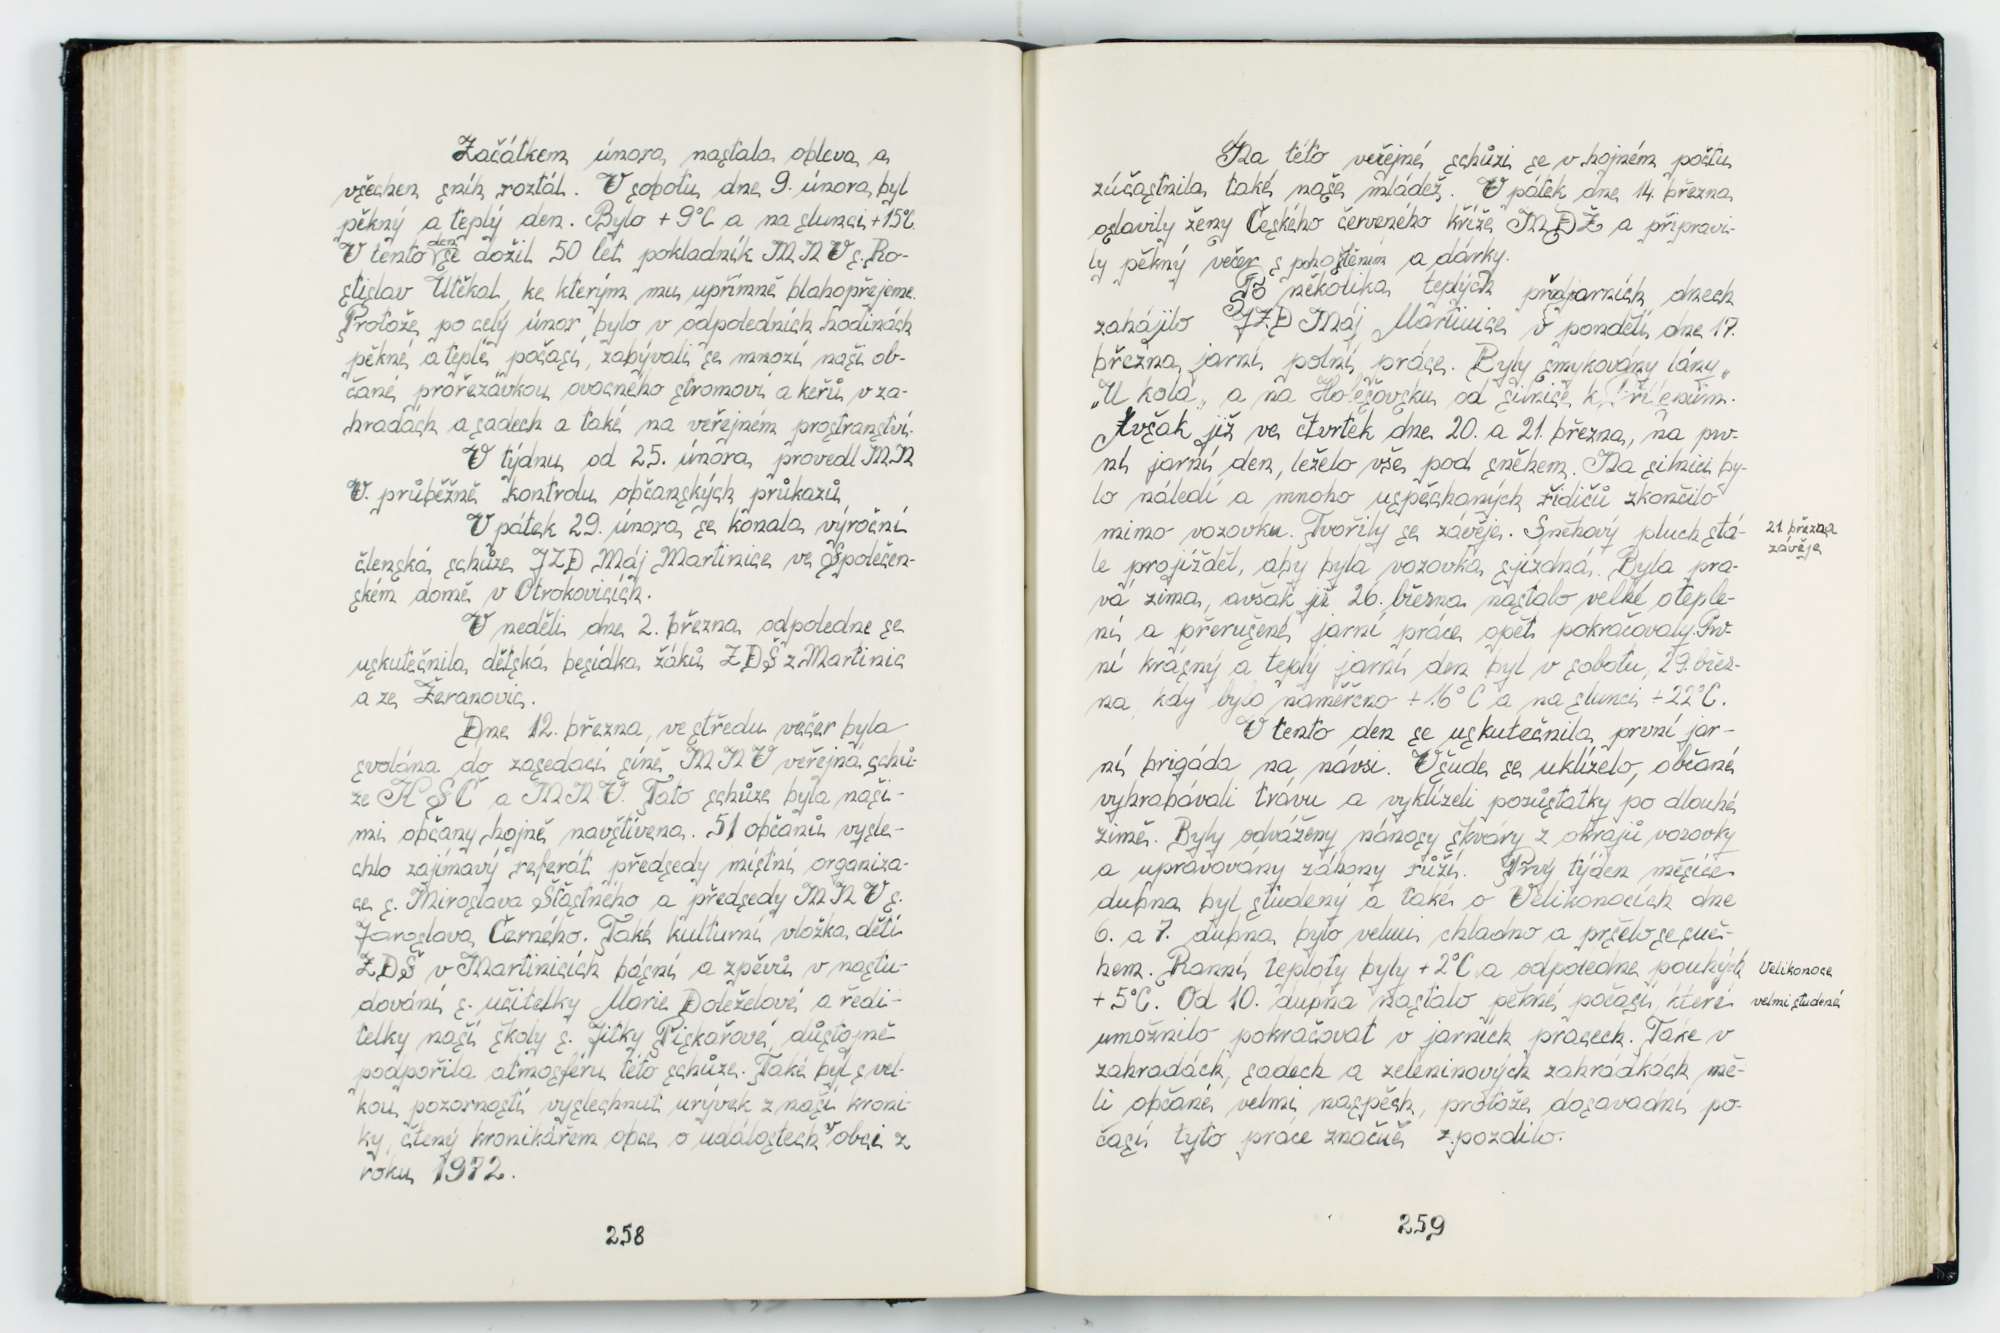 Začátkem února nastala obleva a
všechen sníh roztál. V sobotu dne 9. února byl
pěkný a teplý den. Bylo +9°C a na slunci +15°C.
V tento den se dožil 50 let pokladník MNV s. Ro-
stislav Utěkal, ke kterým mu upřímně blahopřejeme.
Protože po celý únor bylo v odpoledních hodinách
pěkné a teplé počasí, zabývali se mnozí naši ob-
čané prořezávkou ovocného stromoví a keřů v za-
hradách a sadech a také na veřejném prostranství.
V týdnu od 25. února provedl MN
V. průběžně kontrolu občanských průkazů
V pátek 29. února se konala výroční
členská schůze JZD Máj Martinice ve Společen-
ském domě v Otrokovicích.
V neděli dne 2. března odpoledne se
uskutečnila dětská besídka žáků ZDŠ z Martinic
a ze Žeranovic.
Dne 12. března, ve středu večer byla
svolána do zasedací síně MNV veřejná schů-
ze KSČ a MNV. Tato schůze byla naši-
mi občany hojně navštívena. 51 občanů vysle-
chlo zajímavý referát předsedy místní organiza-
ce s. Miroslava Šťastného a předsedy MNV s.
Jaroslava Černého. Také kulturní vložka dětí
ZDŠ v Martinicích básní a zpěvů v nastu-
dování s. učitelky Marie Doleželové a ředi-
telky naší školy s. Jitky Piskařové, důstojně
podpořila atmosféru této schůze. Také byl s vel-
kou pozorností vyslechnut úryvek z naší kroni-
ky, čtený kronikářem obce o událostech v obci z
roku 1972.
258
Na této veřejné schůzi se v hojném počtu
zúčastnila také naše mládež. V pátek dne 14. března
oslavily ženy Českého červeného kříže MDŽ a připravi-
ly pěkný večer s pohoštěním a dárky.
Po několika teplých předjarních dnech
zahájilo JZD Máj Martinice v pondělí dne 17.
března jarní polní práce. Byly smykovány lány
„U kola„ a na Holešovsku od silnice k
Avšak již ve čtvrtek dne 20. a 21. března, na prv-
ní jarní den, leželo vše pod sněhem. Na silnici by-
lo náledí a mnoho uspěchaných řidičů zkončilo
mimo vozovku. Tvořily se závěje. Sněhový pluch stá-
le projížděl, aby byla vozovka sjízdná. Byla pra-
vá zima, avšak již 26. března nastalo velké oteple-
ní a přerušené jarní práce opět pokračovaly. Prv-
ní krásný a teplý jarní den byl v sobotu, 29. břez-
na, kdy bylo naměřeno +16°C a na slunci +22°C.
V tento den se uskutečnila první jar-
ní brigáda na návsi. Všude se uklízelo, občané
vyhrabávali trávu a vyklízeli pozůstatky po dlouhé
zimě. Byly odváženy nánosy škváry z okrajů vozovky
a upravovany záhony růží. Prvý týden měsíce
dubna byl studený a také o Velikonocích dne
6. a 7. dubna bylo velmi chladno a pršelo se sně-
hem. Ranní teploty byly +2°C a odpoledne pouhých
+5°C. Od 10. dubna nastalo pěkné počasí, které
umožnilo pokračovat v jarních pracech. Take v
zahradách, sadech a zeleninových zahrádkách mě-
li občané velmi naspěch, protože dosavadní po-
časí tyto práce značně zpozdilo.
21. března
závěje
Velikonoce
velmi studené
259